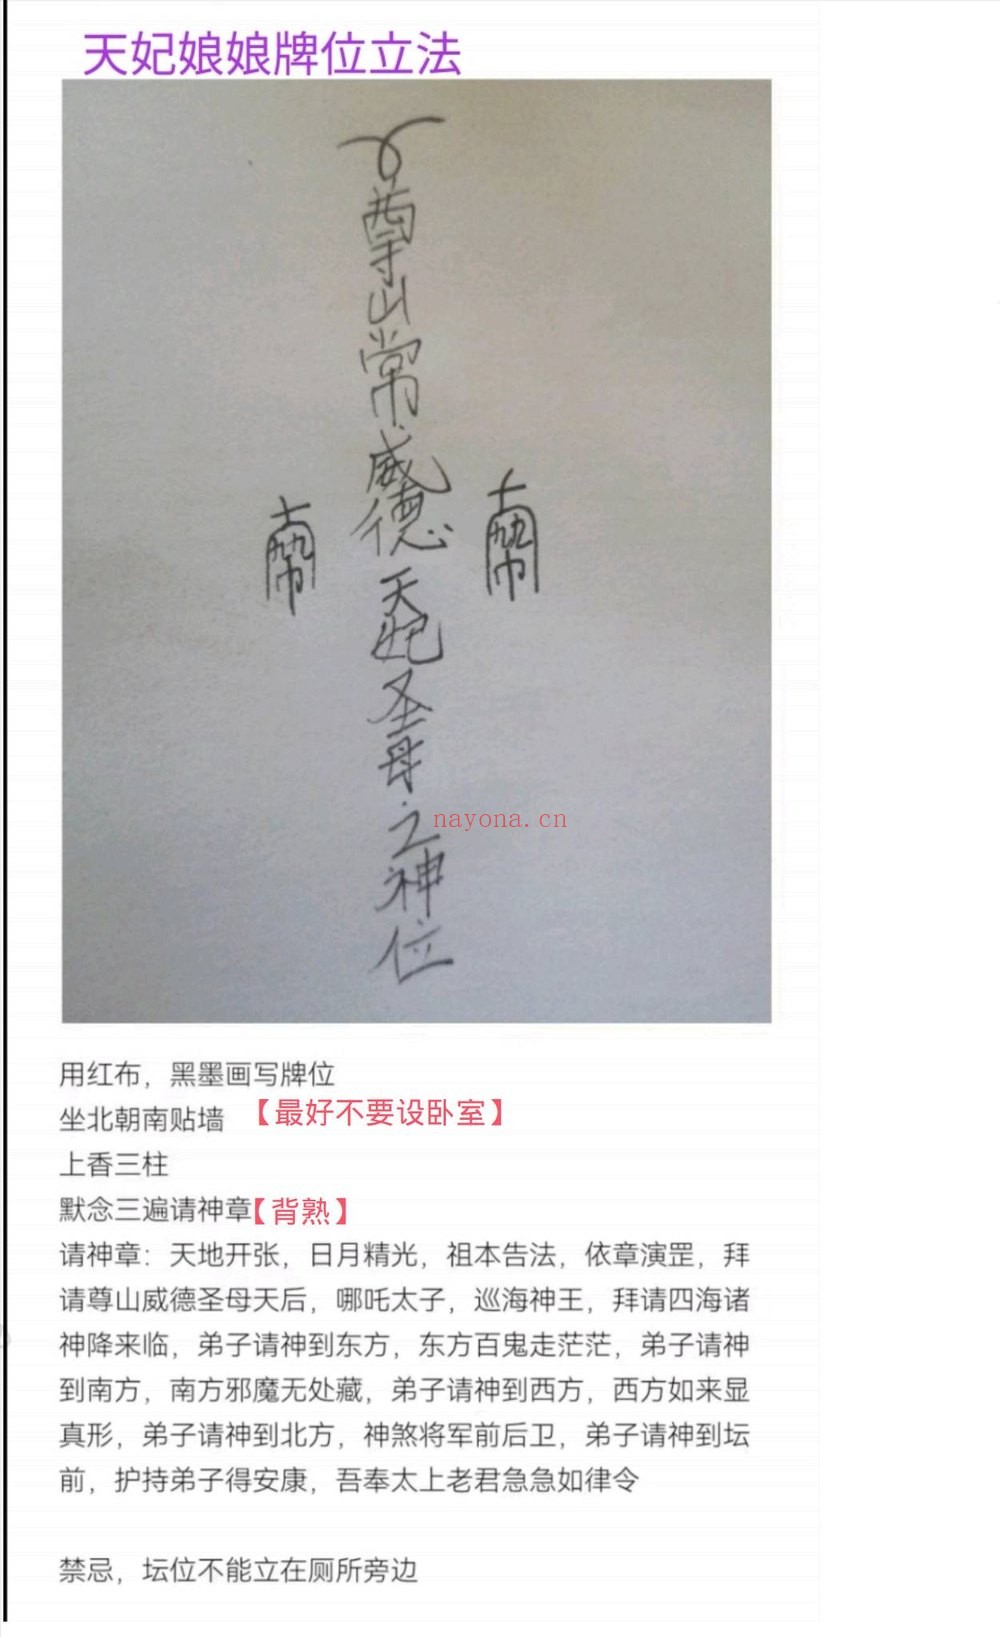 天妃娘娘牌位立法
尊山常威德天妃圣母之神位
nayona.cn
用红布，黑墨画写牌位
坐北朝南贴墙【最好不要设卧室】
上香三柱
默念三遍请神章【背熟】
请神章：天地开张，日月精光，祖本告法，依章演罡，拜
请尊山威德圣母天后，哪吒太子，巡海神王，拜请四海诸
神降来临，弟子请神到东方，东方百鬼走茫茫，弟子请神
到南方，南方邪魔无处藏，弟子请神到西方，西方如来显
真形，弟子请神到北方，神煞将军前后卫，弟子请神到坛
前，护持弟子得安康，吾奉太上老君急急如律令
禁忌，坛位不能立在厕所旁边